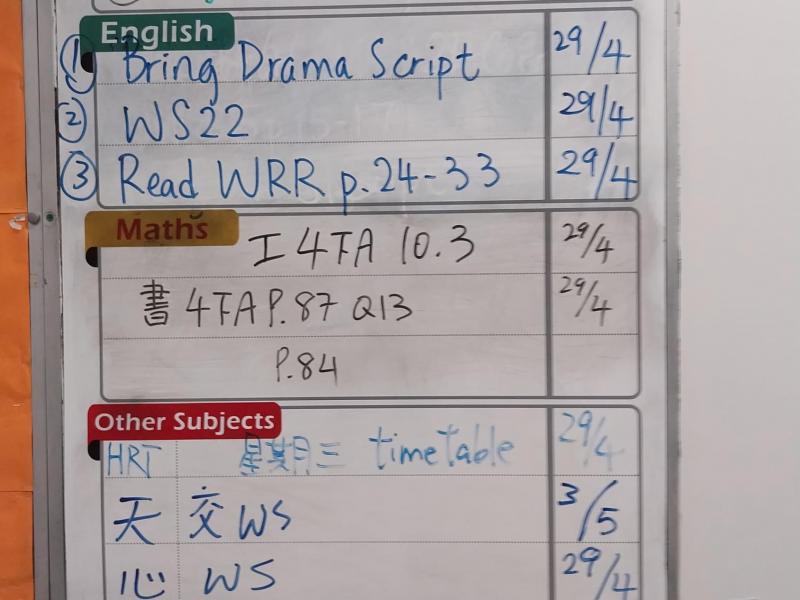 English
① Bring Drama Script 29/4
② WS22 29/4
③ Read WRR p.24-33 29/4
Maths
工 4TA 10.3 29/4
書 4TA P.87 Q13 29/4
P.84
Other Subjects
HRT 星期三 timetable 29/4
天 交 WS 3/5
心 WS 29/4